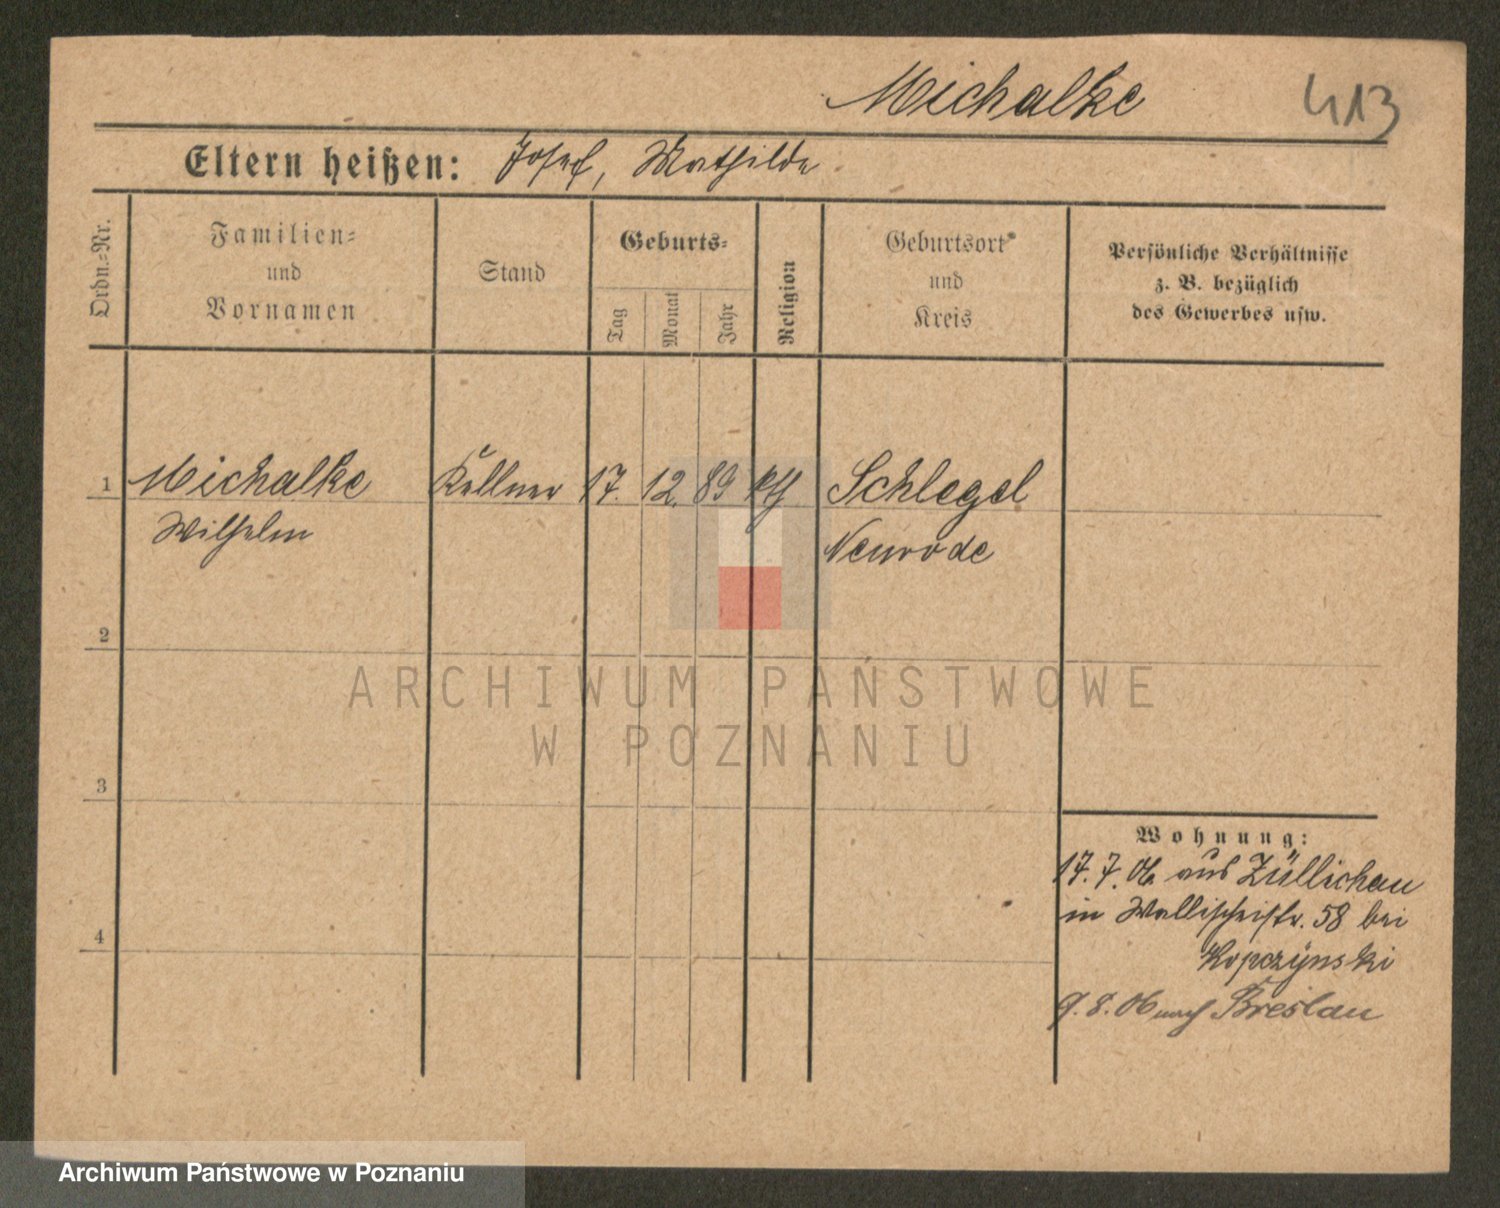 Michalke 413
Eltern heißen: Josef, Mathilde
Ordn.-Nr.
Familien-
und
Vornamen
Stand
Geburts-
Tag
Monat
Jahr
Religion
Geburtsort
und
Kreis
Persönliche Verhältnisse
z. B. bezüglich
des Gewerbes usw.
1 Michalke Kellner 17. 12. 89 kth Schlegel
Wilhelm Neurode
2
ARCHIWUM PAŃSTWOWE
W POZNANIU
3
Wohnung:
17. 7. 06 aus Züllichau
in Wallischeistr. 58 bei
Kopczynski
4
9. 8. 06 nach Breslau
Archiwum Państwowe w Poznaniu